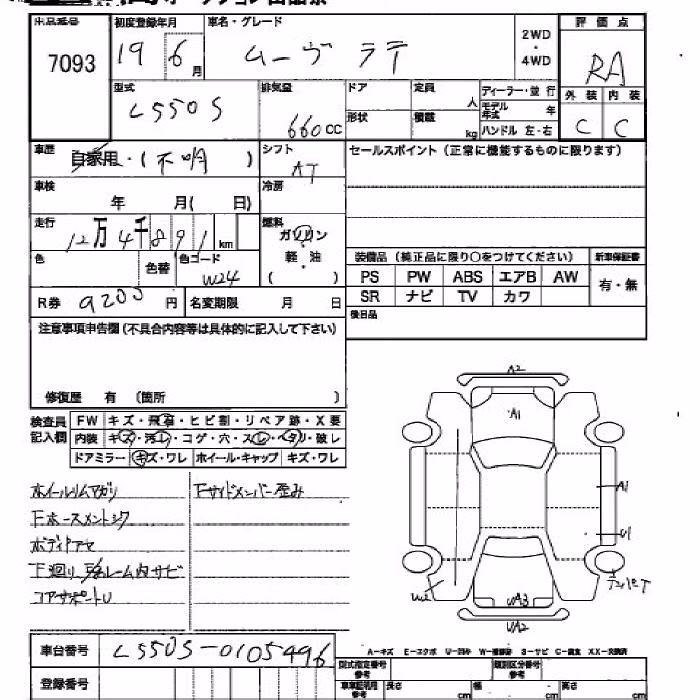 出品番号 初度登録年月 車名・グレード 2WD ・ 4WD 評価点
7093 19 6月 ムーヴ ラテ RA
型式 排気量 ドア 定員 人 ディーラー・並行 外装 内装
L550S 660cc 形状 積載 kg モデル年式 年 C C
ハンドル 左・右
車歴 自家用・(不明) シフト AT セールスポイント(正常に機能するものに限ります)
車検 年 月( 日) 冷房
走行 12万4千891km 燃料 ガソリン ・ 軽油 ( )
装備品 (純正品に限り○をつけてください) 新車保証書
色 色替 色コード W24 PS PW ABS エアB AW 有・無
R券 9200円 名変期限 月 日 SR ナビ TV カワ
後日品
注意事項申告欄(不具合内容等は具体的に記入して下さい)
修復歴 有 (箇所 )
A2
A1
検査員記入欄 FW キズ・飛石・ヒビ割・リペア跡・X要
内装 キズ・汚レ・コゲ・穴・スレ・ヘタリ・破レ
ドアミラー キズ・ワレ ホイール・キャップ キズ・ワレ
ホイールリムマガリ Fサイドメンバー歪み
A1
Fホースメントシワ
U1
ボディアセ
下廻り フレーム内サビ
コアサポートU
W2 UA3
UA2
車台番号 L550S-0105496
A-キズ E-エクボ U-凹み W-補修跡 S-サビ C-腐食 XX-交換済
型式指定番号 参考 類別区分番号 参考
登録番号 車車証明用 参考 長さ cm 幅 cm 高さ cm